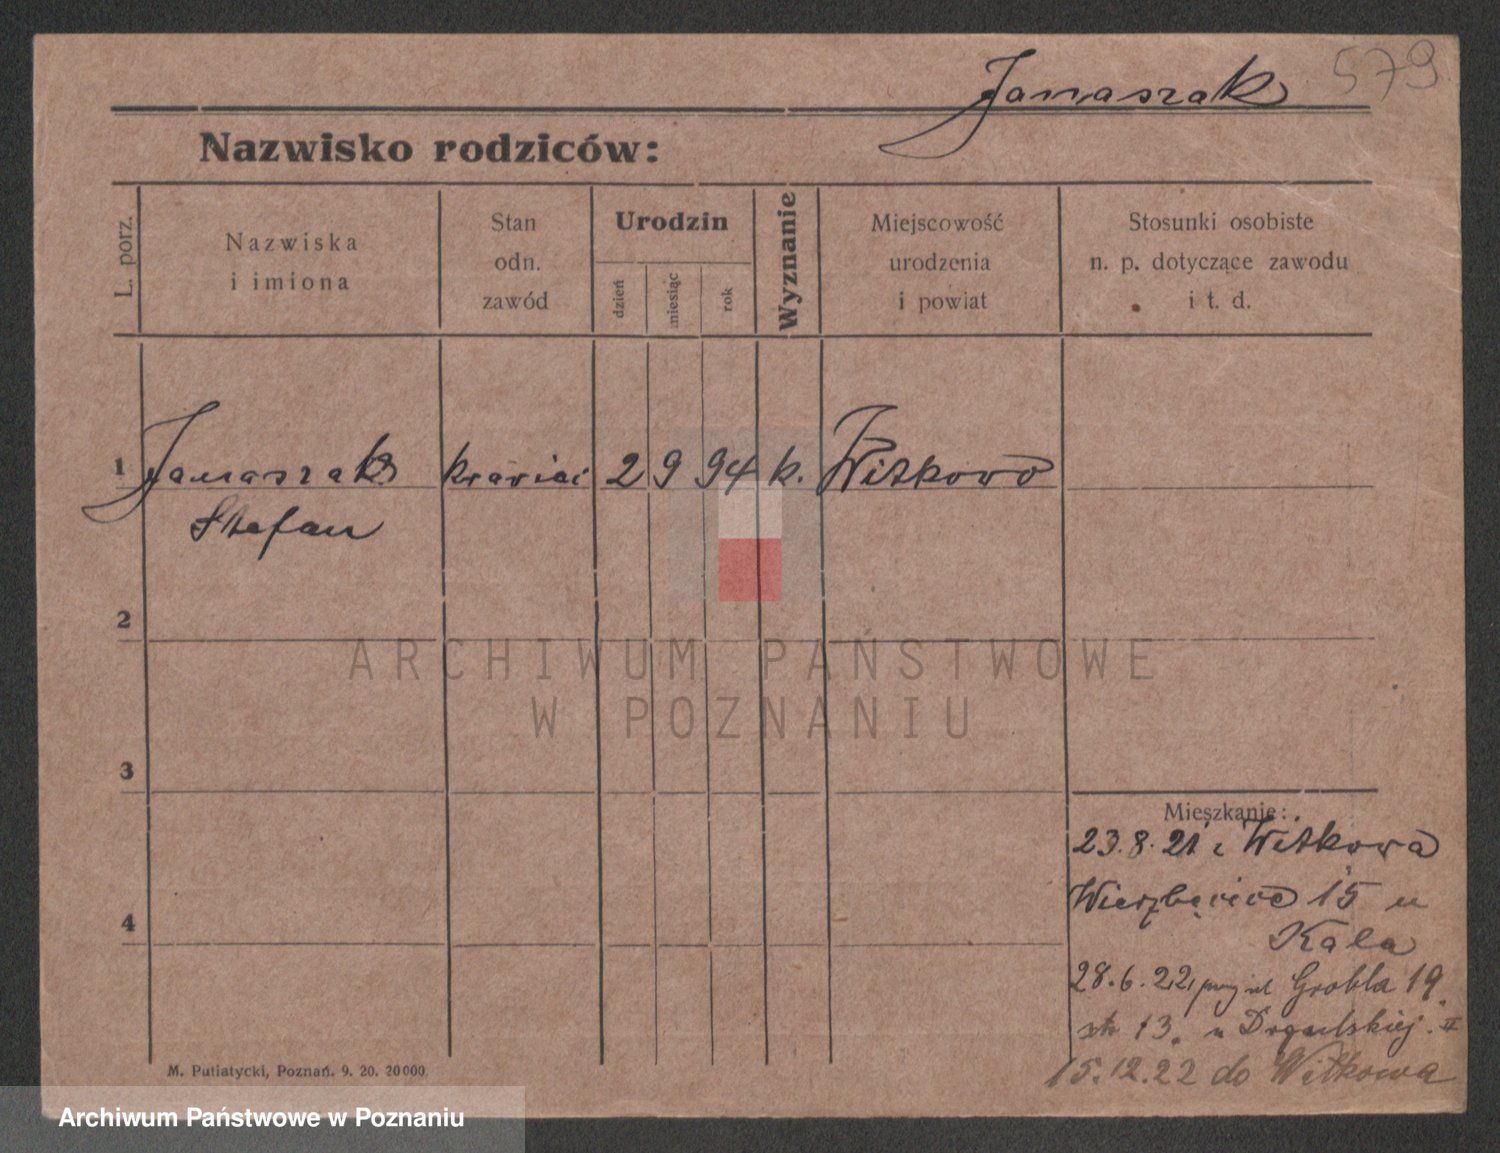 579
Janaszak
Nazwisko rodziców:
L. porz.
Nazwiska
i imiona
Stan
odn.
zawód
Urodzin
dzień
miesiąc
rok
Wyznanie
Miejscowość
urodzenia
i powiat
Stosunki osobiste
n. p. dotyczące zawodu
i t. d.
1 Janaszak 2 9 94 k. Witkowo
Stefan
2
ARCHIWUM PAŃSTWOWE
W POZNANIU
3
Mieszkanie:
23.8.21 z Witkowa
Wierzbięcice 15 u
Kala
28.6.22 przy ul Grobla 19
13. u II
15.12.22 do Witkowa
4
M. Putiatycki, Poznań. 9. 20. 20000.
Archiwum Państwowe w Poznaniu